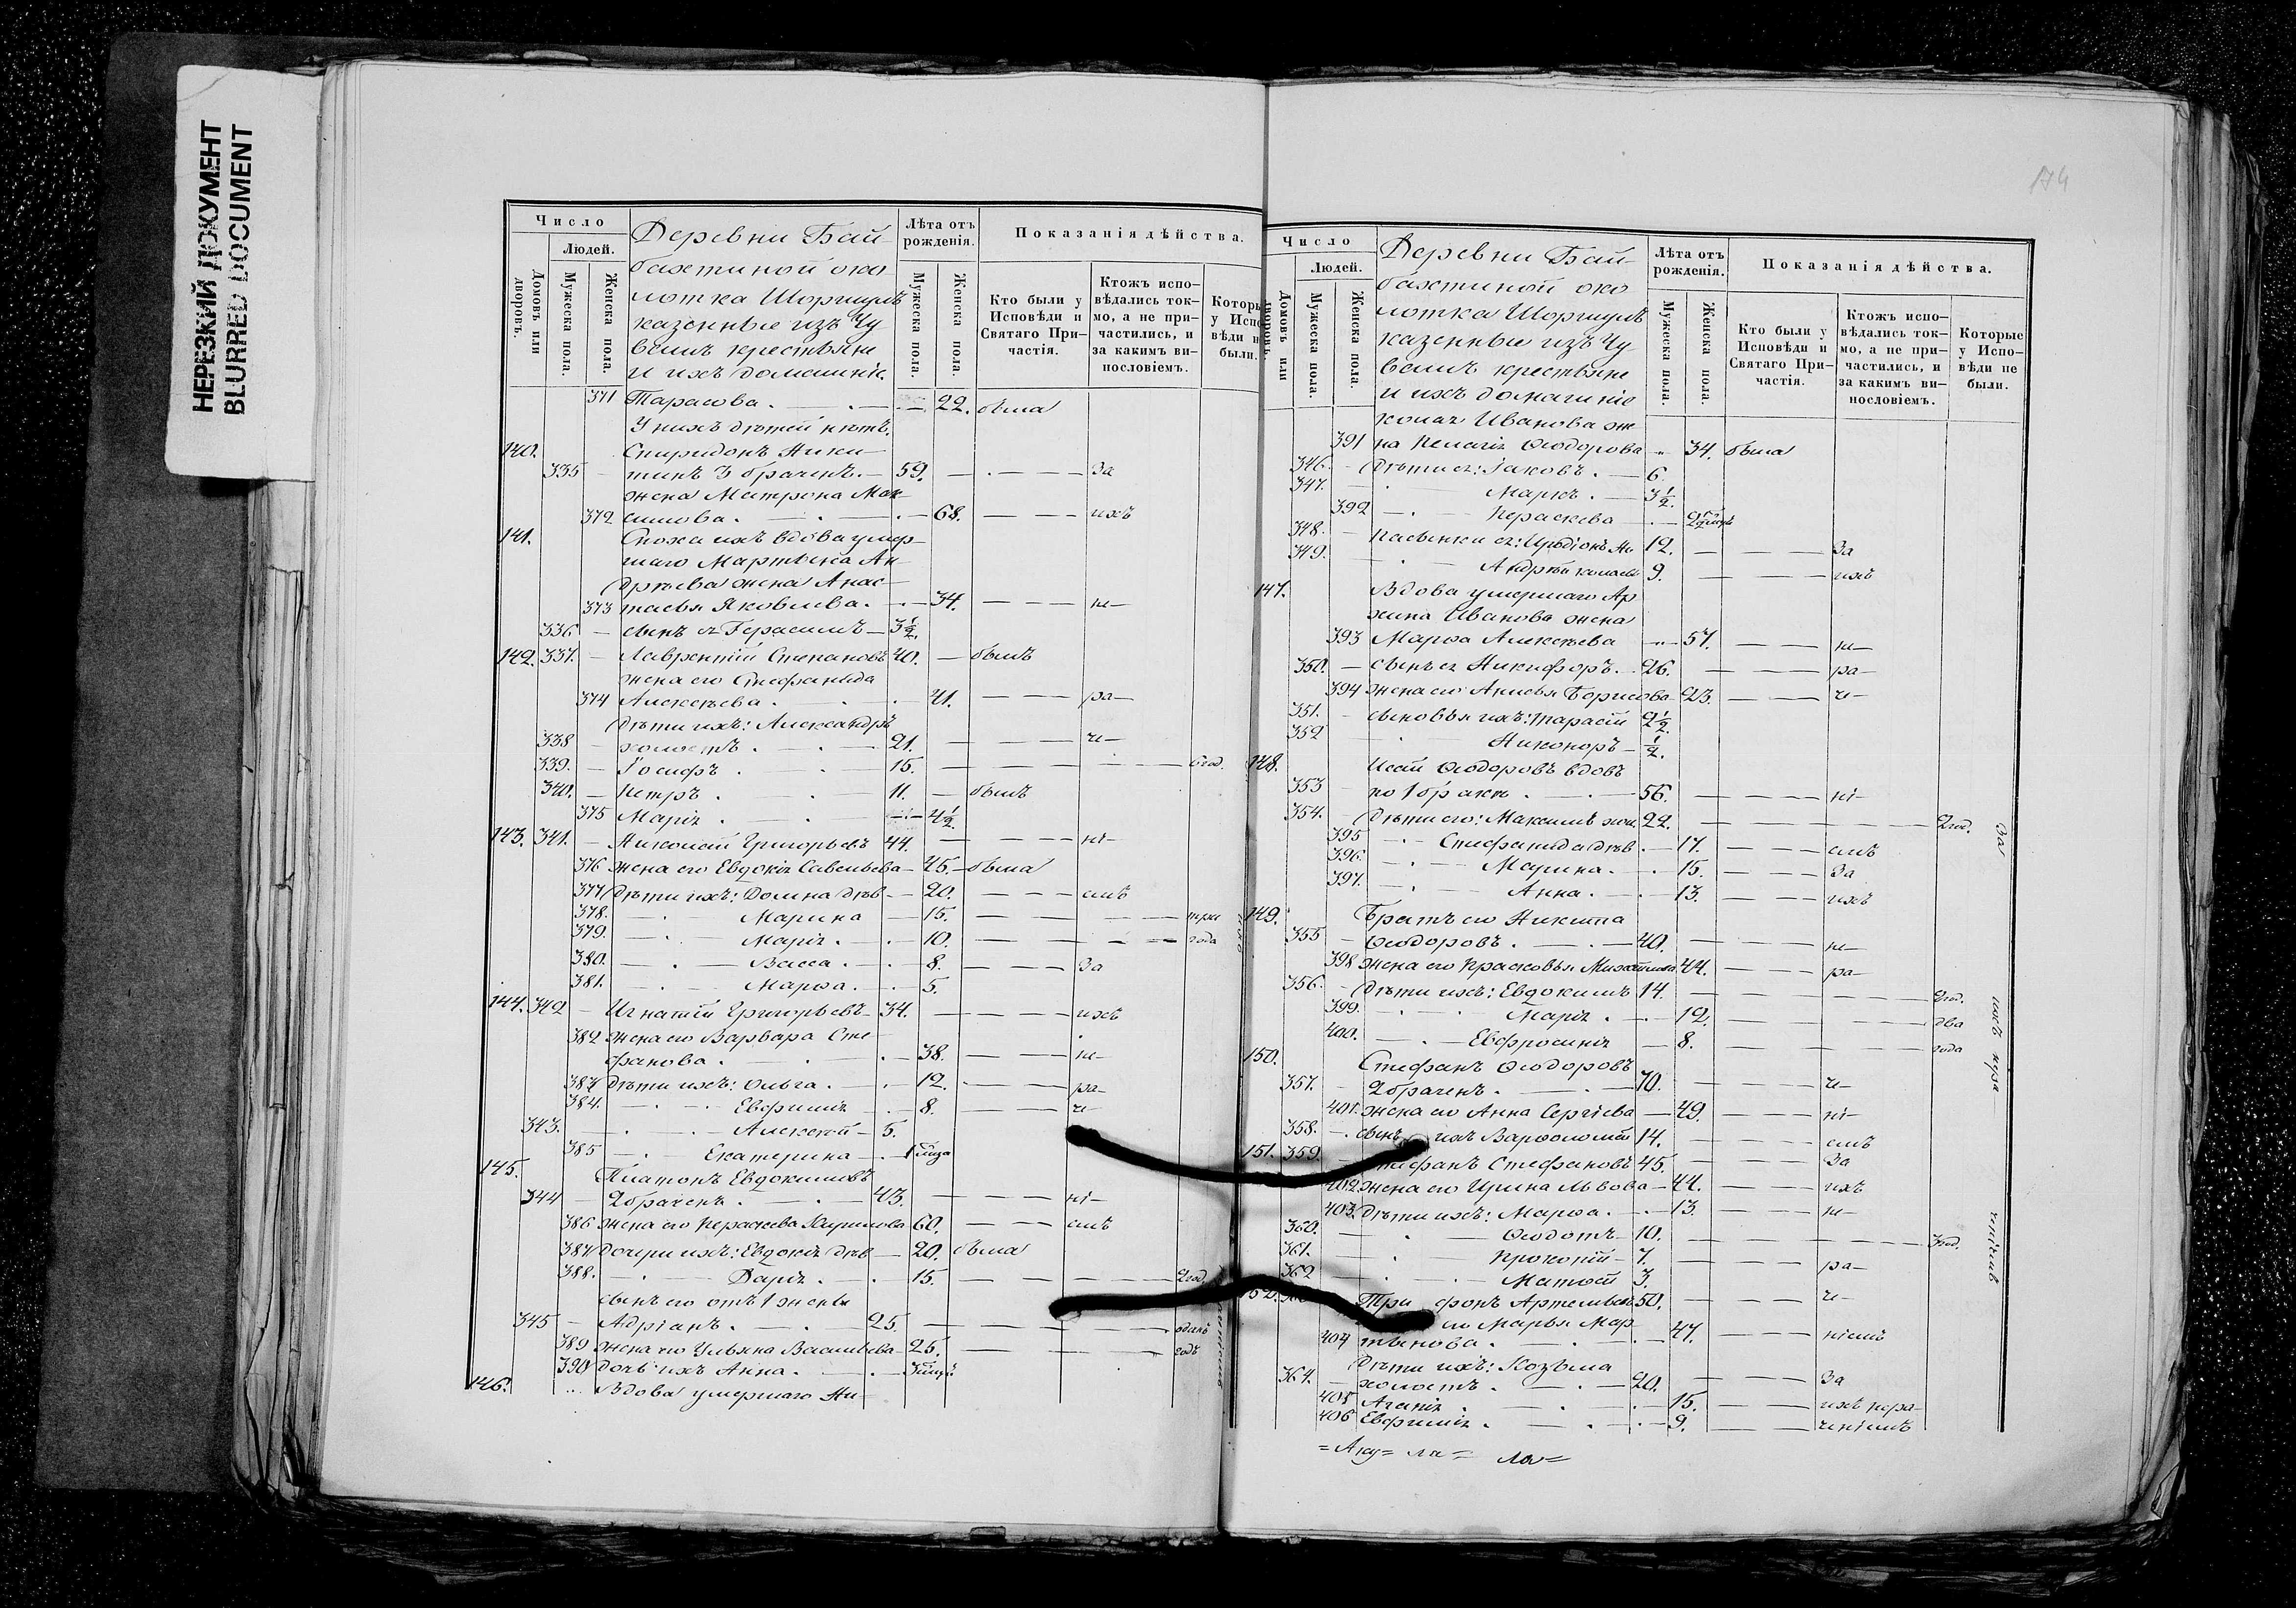 НЕРЕЗКИЙ ДОКУМЕНТ
BLURRED DOCUMENT
174
Число
Людей.
Домовъ или дворовъ.
Мужеска пола.
Женска пола.
Деревни Бай-
бахтиной око
лотка Шоршулъ
казенные изъ Чу
вашъ крестьяне
и ихъ домашніе.
Лѣта отъ рожденія.
Мужеска пола.
Женска пола.
Показанія дѣйства.
Кто были у Исповѣди и Святаго При-частія.
Ктожъ испо-вѣдались ток-мо, а не при-частились, и за какимъ ви-нословіемъ.
Которы у Испо вѣди н были.
371 Тарасова. 22. была
У нихъ дѣтей нѣтъ.
140. Спиридонъ Ники-
335 тинъ 3 браченъ. 59. За
жена Матрона Мак
372 симова. 68. ихъ
141. Сноха ихъ вдова умер-
шаго Мартына Ан
дрѣева жена Анас-
373 тасья Яковлева. 34. не-
336 сынъ ея Герасимъ 3½.
142. 337. Лаврентій Степановъ 40. былъ
жена его Стефанида
374 Алексѣева. 41. ра-
дѣти ихъ: Александръ
338 холостъ. 21. че-
339. Іосифъ. 15. год.
340. Петръ. 11. былъ
375 Марія. 4½.
143. 341. Николай Григорьевъ 44. ні-
376 жена его Евдокія Савельева 45. была
377 дѣти ихъ: Домна дѣв 20. емъ
378. Марина 15. три
379. Марія. 10. года
380. Васса. 8. За
381. Марѳа. 5.
144. 342 Игнатій Григорьевъ 34. ихъ
382 жена его Варвара Сте
фанова. 38. не-
383 дѣти ихъ: Ольга. 12. ра-
384. Евфимія 8. че-
343. Алексѣй 5.
385 Екатерина
145. Платонъ Евдокимовъ
344 2 браченъ. 43. ні-
386 жена его Пераскева Кирилова 60. емъ
387 дочери ихъ: Евдокія дѣв 20. была
388. Дарія. 15. 2 год.
сынъ его отъ 1 жены
345 Адріанъ. 25. одинъ
389 жена его Ульяна Васильева 25. годъ
390 дочь ихъ Анна.
146. Вдова умершаго Ни-
Число
Людей.
Домовъ или дворовъ.
Мужеска пола.
Женска пола.
Деревни Бай-
бахтиной око
лотка Шоршулъ
казенные изъ Чу
вашъ крестьяне
и ихъ домашніе
Лѣта отъ рожденія.
Мужеска пола.
Женска пола.
Показанія дѣйства.
Кто были у Исповѣди и Святаго При-частія.
Ктожъ испо-вѣдались ток-мо, а не при-частились, и за какимъ ви-нословіемъ.
Которые у Испо-вѣди не были.
колая Иванова же
391 на Пелагія Ѳеодорова 34. была
346. дѣти ея: Іаковъ. 6.
347. Маркъ. 3½.
392 Пераскева
348. Пасынки ея: 12. За
349. Андрей 9. ихъ
147. Вдова умершаго Ар
хипа Иванова жена
393 Марѳа Алексѣева 57. не-
350. сынъ ея Никифоръ. 26. ра-
394 жена его Анисья Борисова 23. че-
351. сыновья ихъ: Тарасій 2½.
352 Никоноръ ½.
148. Исай Ѳеодоровъ вдовъ
353 по 1 бракѣ. 56. ні-
354. дѣти его: Максимъ хол. 22. 2 год.
395 Стефанида дѣв. 17. емъ
396. Марина. 15. За
397. Анна. 13. ихъ
149. Братъ его Никита
355 Ѳеодоровъ. 40. не-
398 жена его Прасковья Михайлова 44. ра-
356. дѣти ихъ: Евдокимъ 14. 2 год.
399. Марія. 12. два
400. Евфросинія 8. года
150. Стефанъ Ѳеодоровъ
357. 2 браченъ. 70. че-
401. жена его Анна Сергіева 49. ні-
358. сынъ ихъ Варѳоломей 14. емъ
151. 359. Стефанъ Стефановъ 45. За
402 жена его Ирина Львова 44. ихъ
403. дѣти ихъ: Марѳа. 13. не-
360. Ѳеодотъ 10. 3 год.
361. Прокопій 7. ра-
362 Матѳей 3.
Трифонъ Артемьевъ 50. че-
Марья Мар
404 тынова. 47. ніемъ
дѣти ихъ: Козьма
364. холостъ. 20. За
405 Агапія. 15. ихъ нера-
406 Евфимія. 9. ченіемъ
За
ихъ нера
ченіемъ